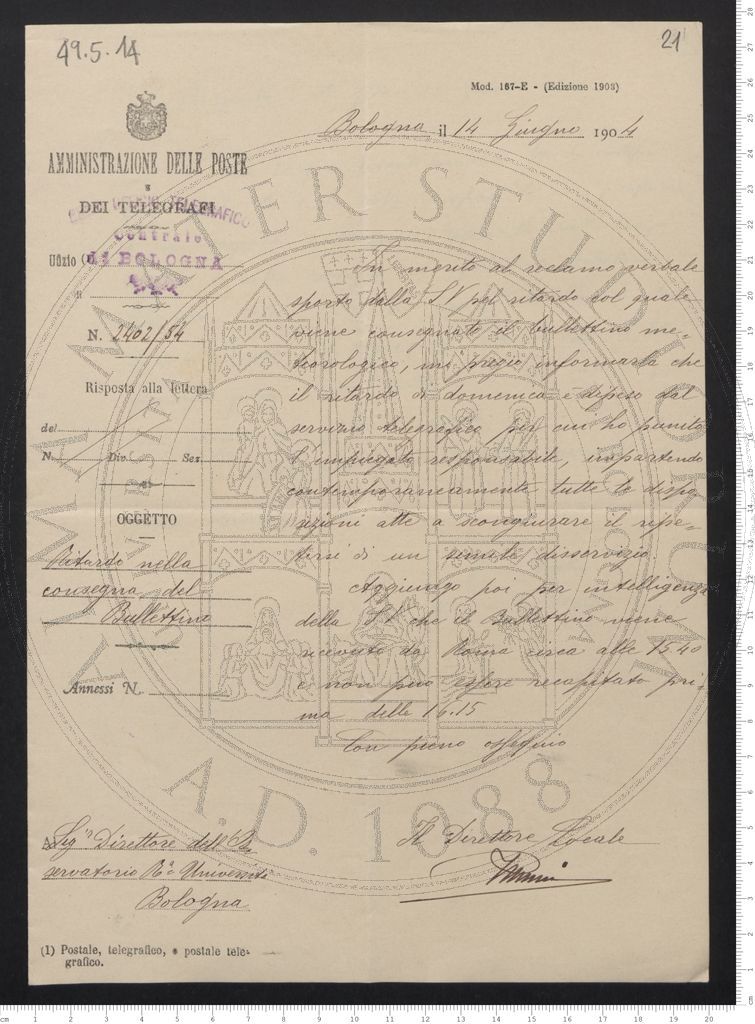 49.5.14
21
Mod. 167-E - (Edizione 1903)
Bologna il 14 Giugno 1904
AMMINISTRAZIONE DELLE POSTE
E
DEI TELEGRAFI
TELEGRAFICO
Centrale
di BOLOGNA
Ufizio (
N. 2402/54
Risposta alla lettera
del
N. Div. Sez.
OGGETTO
Ritardo nella
consegna del
Bullettino
Annessi N.
In merito al reclamo verbale
sporto dalla S.V pel ritardo col quale
viene consegnato il bullettino me-
teorologico, mi pregio informarla che
il ritardo di domenica è dipeso dal
servizio telegrafico per cui ho punito
l'impiegato responsabile, impartendo
contemporaneamente tutte le dispo-
sizioni atte a scongiurare il ripe-
tersi di un simile disservizio.
Aggiungo poi per intelligenza
della S.V che il Bullettino viene
ricevuto da Roma circa alle 15.40
e non può essere recapitato pri-
ma delle 16.15
Con pieno ossequio
Il Direttore Locale
Al Sig.r Direttore dell'Os-
servatorio R.a Università
Bologna
(1) Postale, telegrafico, e postale tele-
grafico.
ALMA MATER STUDIORUM
A.D. 1088